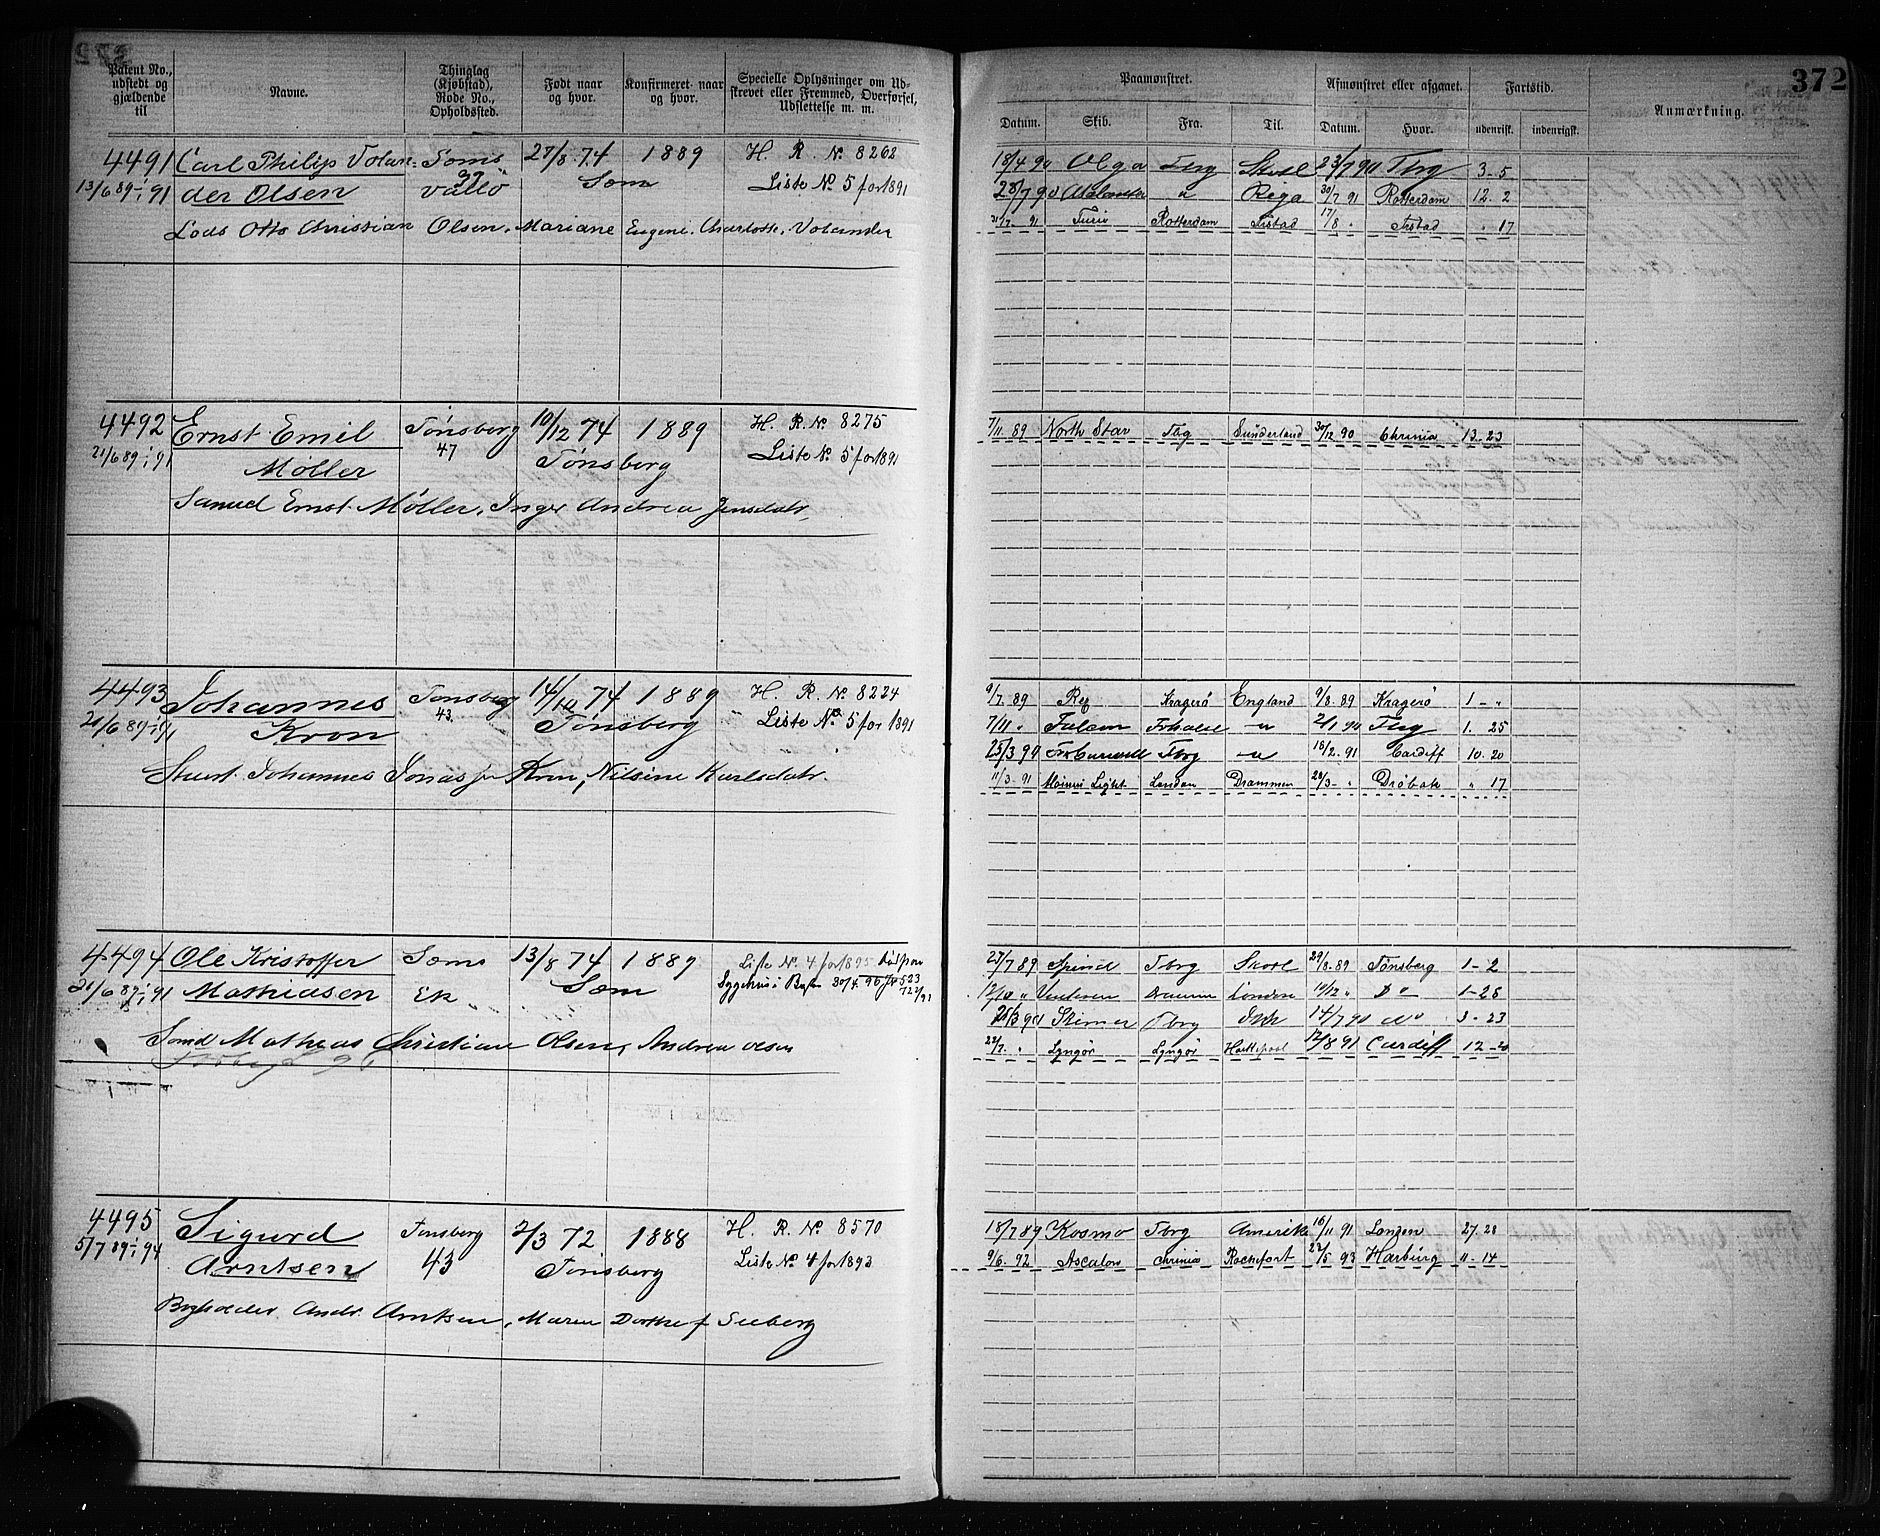 372
Patent No., udstedt og gjældende til
Navne.
Thinglag (Kjøbstad), Rode No., Opholdssted.
Født naar og hvor.
Konfirmeret naar og hvor.
Specielle Oplysninger om Udskrevet eller Fremmed, Overførsel, Udslettelse m. m.
Paamønstret.
Afmønstret eller afgaaet.
Fartstid.
Anmærkning.
Datum. Skib. Fra. Til. Datum. Hvor. udenrisk. indenrigsk.
4491 Carl Philip Volan- Sems 27/8 74 1889 H. R. No 8262
13/6 89-i 91 der Olsen Vallö Sem Liste No 5 for 1891
Lods Otto Christian Olsen, Mariane Eugeni Charlotte Volander
18/4 90 Olga Tbg Skotl 23/7 90 Tbg 3-5
28/7 90 " Riga 30/7 91 Rotterdam 12-2
91 Rotterdam 17/8 " " 17
4492 Ernst Emil Tönsberg 10/12 74 1889 H. R. No 8275
21/6 89-i 91 Møller 47 Tønsberg Liste No 5 for 1891
Samuel Ernst Möller, Inger Andrea Jensdatr,
7/11 89 North Star Tbg Sunderland 30/12 90 Chrinia 13-23
4493 Johannes Tönsberg 14/10 74 1889 H. R. No 8224
21/6 89-i 91 Kron 43 Tønsberg Liste No 5 for 1891
Stuert Johannes Jonassen Kron, Nilsine Karlsdatr.
9/7 89 Kragerö England 9/8 89 Kragerö 1-"
7/11 " Falcon 2/1 90 Tbg 1. 25
25/3 90 Tbg " 16/2 91 Cardiff 10. 20
11/3 91 London Drammen 28/3 " Dröbak " 17
4494 Ole Kristoffer Sems 13/8 74 1889 Liste No 4 for 1895
21/6 89-i 91 Mathiasen Ek Sem
Mathias Christian Olsen, Andrea Olsen
27/7 89 Spind Tbrg Skotl 29/8 89 Tønsberg 1-2
12/10 " London 10/12 " Do 1-28
Tbrg 14/7 90 Do 3-23
22/7 " Lyngör Lyngör Hartlepool 12/8 91 Cardiff 12-20
4495 Sigurd Tønsberg 2/3 72 1888 H. R. No 8570
5/7 89-i 94 Arntsen 43 Tønsberg Liste No 4 for 1893
Andr. Arntsen, Maren Dorthe f Seeberg
18/7 89 Kosmo Tbrg Amerika 16/11 91 London 27. 28
9/6. 92 Ascalon Chrinia Rochefort 22/5 93 Harburg 11-14